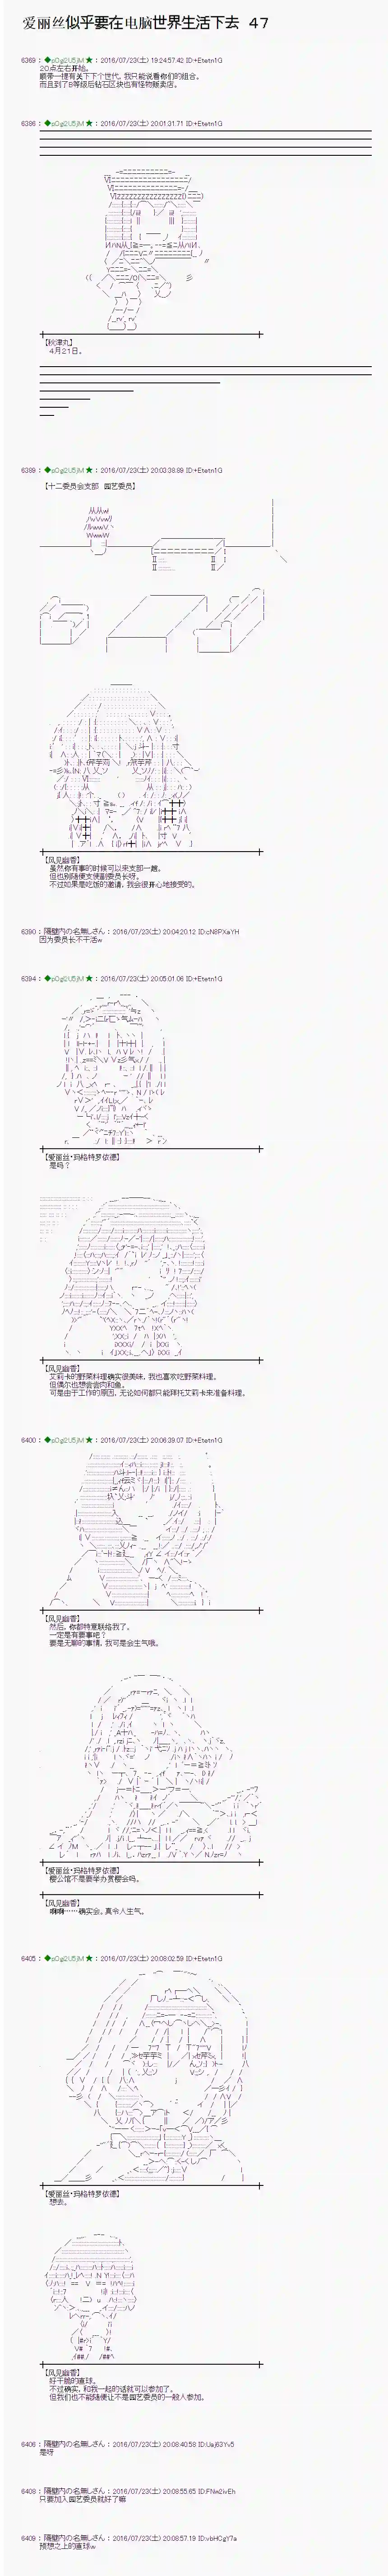 爱丽丝似乎要在电脑世界生活下去 47
6369 : ◆pOgi2U5jM ★ : 2016/07/23(土) 19:24:57.42 ID:+Etetn1G
20点左右开始。
顺带一提有关下下个世代，我只能说看你们的组合。
而且到了8等级后钻石区块也有怪物贩卖店。
6386 : ◆pOgi2U5jM ★ : 2016/07/23(土) 20:01:31.71 ID:+Etetn1G
【秋津丸】
4月21日。
6389 : ◆pOgi2U5jM ★ : 2016/07/23(土) 20:03:38.89 ID:+Etetn1G
【十二委员会支部 园艺委员】
【风见幽香】
虽然你有事的时候可以来支部一趟。
但也别随便支使副委员长呀。
不过如果是吃饭的邀请，我会很开心地接受的。
6390 : 隔壁内の名無しさん : 2016/07/23(土) 20:04:20.12 ID:cN8PXaYH
因为委员长不干活w
6394 : ◆pOgi2U5jM ★ : 2016/07/23(土) 20:05:01.06 ID:+Etetn1G
【爱丽丝·玛格特罗依德】
是吗？
【风见幽香】
艾莉卡的野菜料理确实很美味，我也喜欢吃野菜料理。
但偶尔也想尝尝肉和鱼。
可是由于工作的原因，无论如何都只能拜托艾莉卡来准备料理。
6400 : ◆pOgi2U5jM ★ : 2016/07/23(土) 20:06:39.07 ID:+Etetn1G
【风见幽香】
然后，你都特意联络我了。
一定是有要事吧？
要是无聊的事情，我可是会生气哦。
【爱丽丝·玛格特罗依德】
樱公馆不是要举办赏樱会吗。
【风见幽香】
啊啊……确实会。真令人生气。
6405 : ◆pOgi2U5jM ★ : 2016/07/23(土) 20:08:02.59 ID:+Etetn1G
【爱丽丝·玛格特罗依德】
想去。
【风见幽香】
好干脆的直球。
不过确实，和我一起的话就可以参加了。
但我们也不能随便让不是园艺委员的一般人参加。
6406 : 隔壁内の名無しさん : 2016/07/23(土) 20:08:40.58 ID:Uaj63Yv5
是呀
6408 : 隔壁内の名無しさん : 2016/07/23(土) 20:08:55.65 ID:FNw2ivEh
只要加入园艺委员就好了嘛
6409 : 隔壁内の名無しさん : 2016/07/23(土) 20:08:57.19 ID:vbHCgY7a
预想之上的直球w